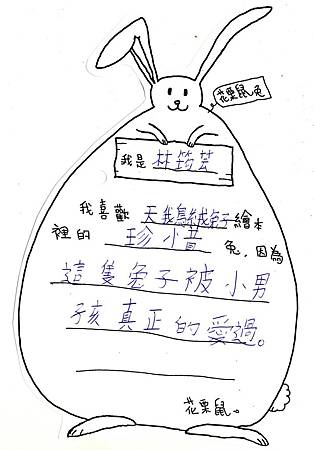 花栗鼠兔
我是 林筠芸
我喜歡 天鵝絨兔子 繪本
裡的 珍惜 兔，因為
這隻兔子被小男
孩真正的愛過。
花栗鼠。